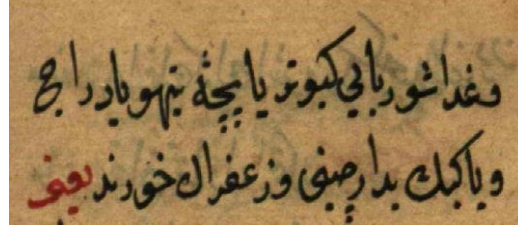 وغدا شوربائی کبوتر یا بچهٔ تیهو یا دراج
ویا کبك بدارچینی وزعفران خورند یعنی